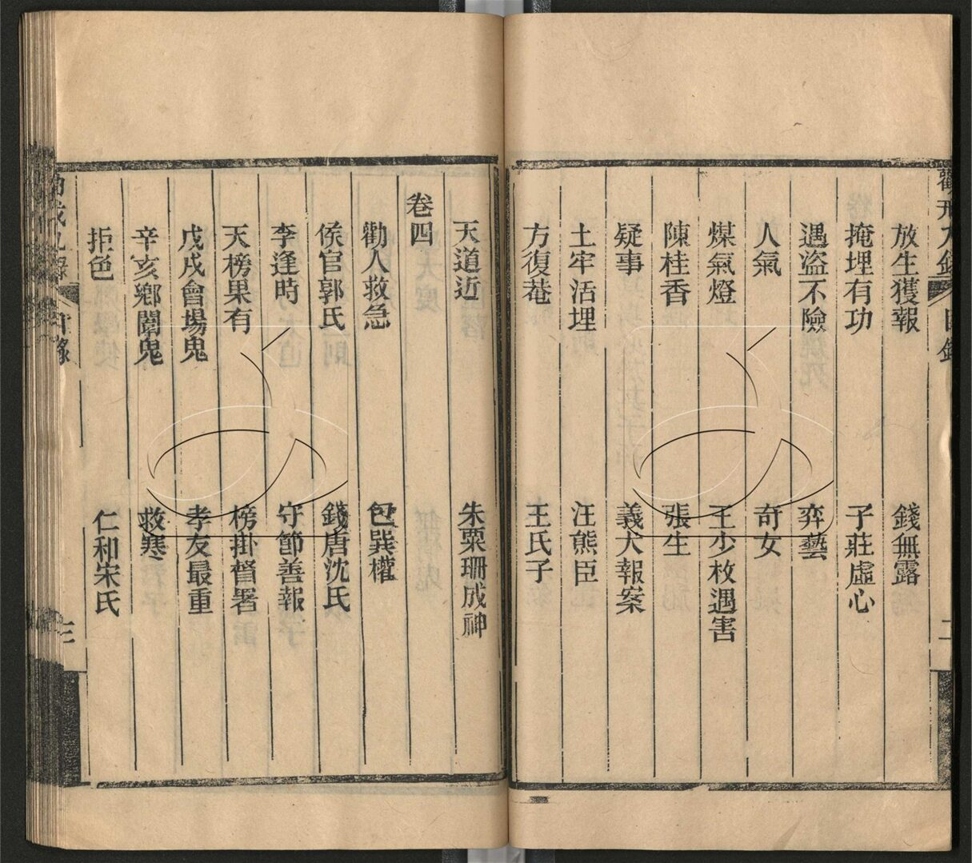 放生獲報 錢無露
掩埋有功 子莊虛心
遇盜不險 弈藝
人氣 奇女
煤氣燈 王少枚遇害
陳桂香 張生
疑事 義犬報案
土牢活埋 汪熊臣
方復菴 王氏子
天道近 朱粟珊成神
卷四
勸人救急 包巽權
侯官郭氏 錢唐沈氏
李逢時 守節善報
天榜果有 榜掛督署
戊戌會場鬼 孝友最重
辛亥鄉闈鬼 救寒
拒色 仁和宋氏
目錄
三